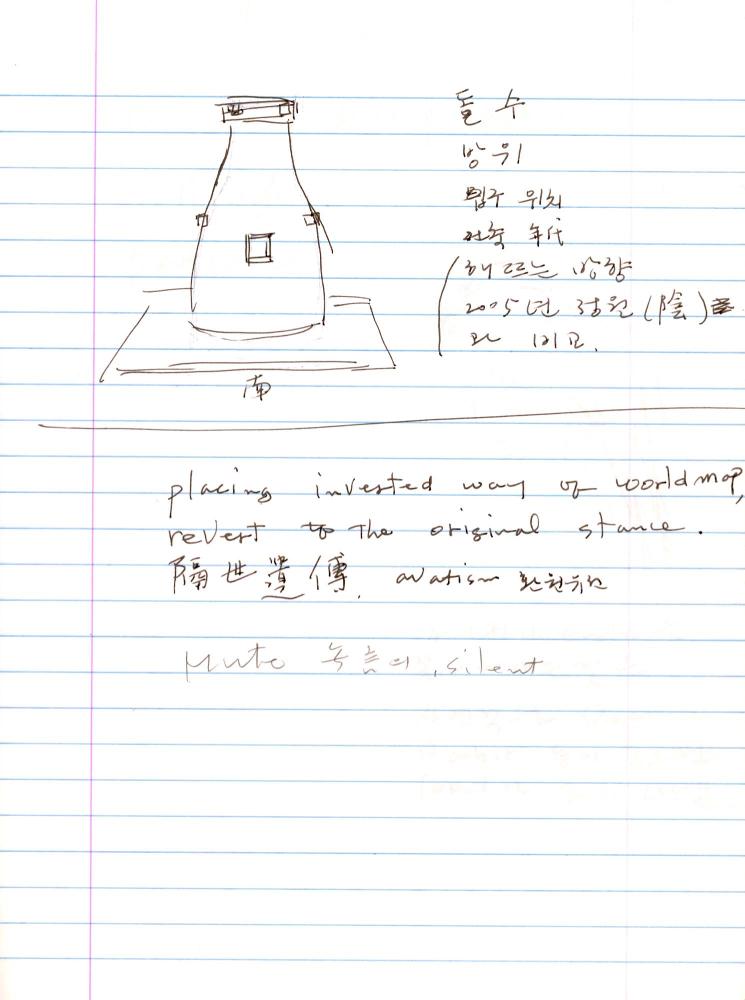 돌 수
방위
위치
건축 年代
해 뜨는 방향
2005년 정월 (陰)
와 비교.
南
placing inverted way of worldmap,
revert to the original stance.
隔世遺傳. avatism
Mute 녹음의, silent